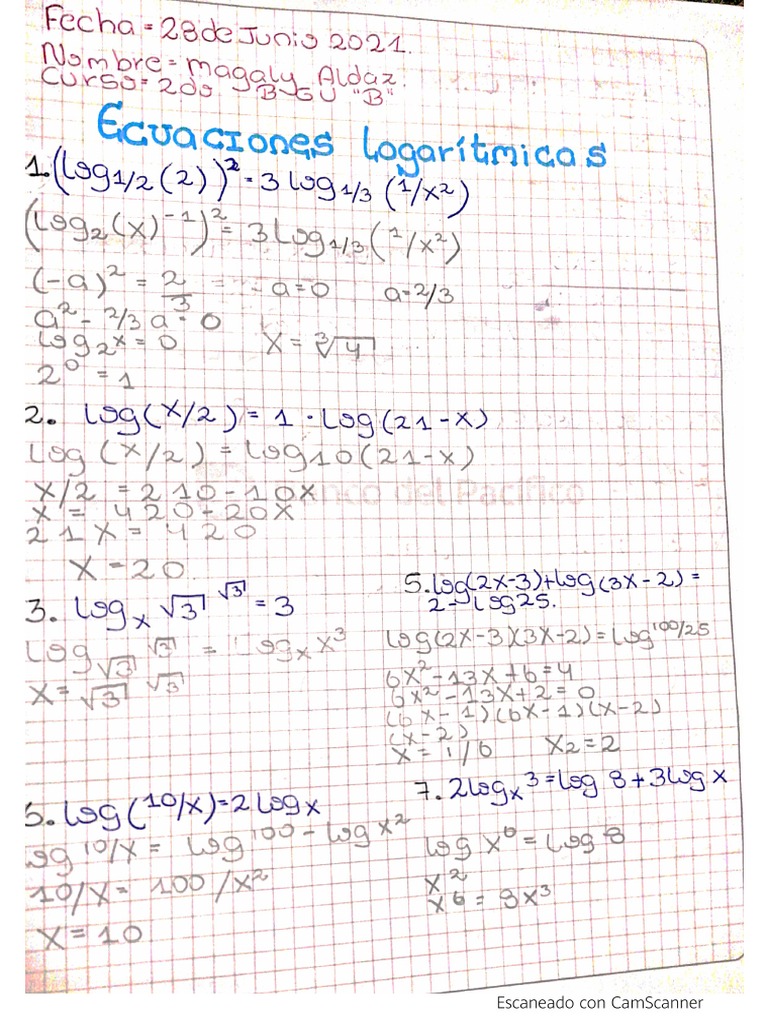 Fecha = 28 de Junio 2021.
Nombre = magaly Aldaz.
Curso = 2do B G U "B"
Ecuaciones logarítmicas
1. (log1/2 (2))² = 3 log1/3 (1/x²)
(log2 (x)⁻¹)² = 3 log1/3 (1/x²)
(-a)² = 2/3 = -a=0 a=2/3
a² - 2/3 a = 0
log2x = 0 x = ³√4
2⁰ = 1
2. log(x/2) = 1 · log(21-x)
log (x/2) = log10(21-x)
x/2 = 210-10x
x = 420-20x
21x = 420
x = 20
3. logx √3^√3 = 3
log√3^√3 = logx x³
x = √3^√3
5. log(2x-3)+log(3x-2)=
2-log25.
log(2x-3)(3x-2)=log100/25
6x²-13x+6=4
6x²-13x+2=0
(6x-1)(6x-1)(x-2)
(x-2)
x = 1/6 x2=2
6. log(10/x)=2logx
log 10/x = log100 - logx²
10/x = 100/x²
x = 10
7. 2logx³=log8+3logx
log x⁶ = log 8
x²
x⁶ = 8x³
Banco del Pacífico
Escaneado con CamScanner